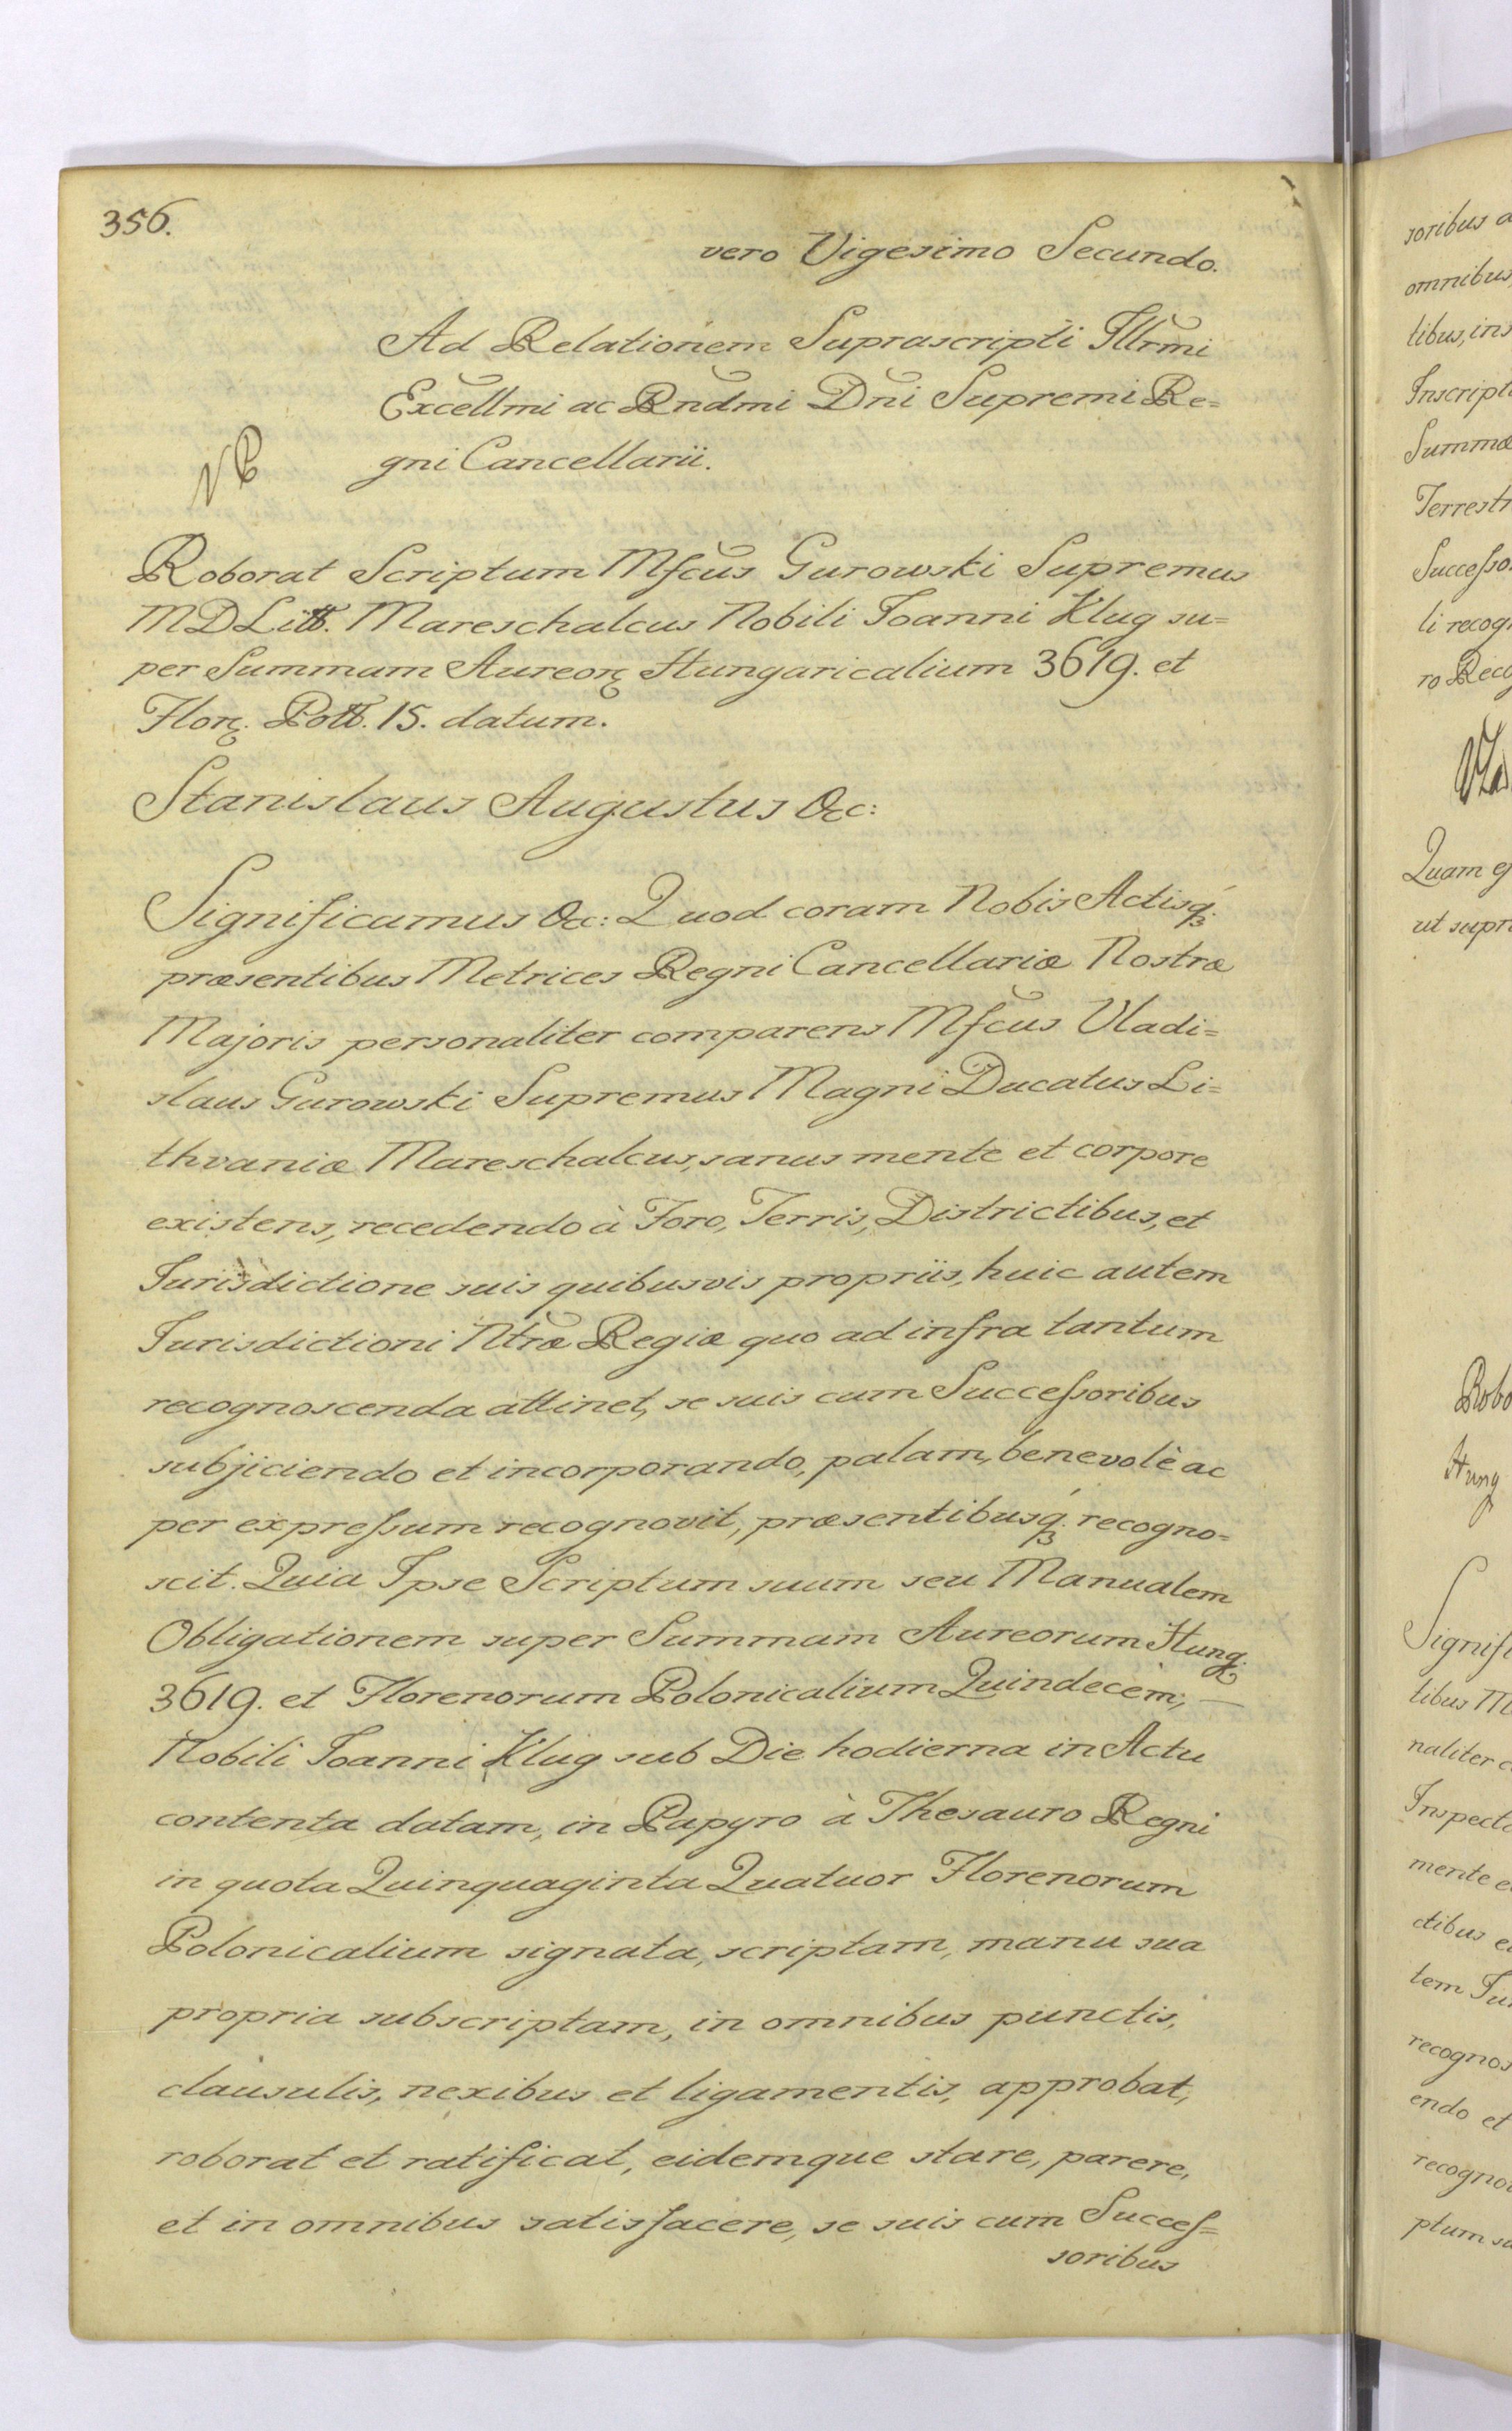 356.
vero Vigesimo Secundo.
Ad Relationem Suprascripti Illrmi
Excellmi ac Rndmi Dni Supremi Re=
gni Cancellarii.
NB
Roborat Scriptum Mfcus Gurowski Supremus
MDLitt. Mareschalcus Nobili Joanni Klug su=
per Summam Aureorꝝ Hungaricalium 3619. et
Florꝝ. Poll. 15. datum.
Stanislaus Augustus &c:
Significamus &c: Quod coram Nobis Actisq́ꝫ.
præsentibus Metrices Regni Cancellariæ Nostræ
Majoris personaliter comparens Mfcus Vladi=
slaus Gurowski Supremus Magni Ducatus Li=
thvaniæ Mareschalcus, sanus mente et corpore
existens, recedendo à Foro, Terris, Districtibus, et
Jurisdictione suis quibusvis propriis, huic autem
Jurisdictioni Ntræ Regiæ quo ad infra tantum
recognoscenda attinet, se suis cum Succeſsoribus
subjiciendo et incorporando, palam, benevolè ac
per expreſsum recognovit, præsentibusq́ꝫ. recogno=
scit. Quia Ipse Scriptum suum seu Manualem
Obligationem super Summam Aureorum Hung.
3619. et Florenorum Polonicalium Quindecem, —
Nobili Joanni Klug sub Die hodierna in Actu
contenta datam, in Papyro à Thesauro Regni
in quota Quinquaginta Quatuor Florenorum
Polonicalium signata, scriptam, manu sua
propria subscriptam, in omnibus punctis,
clausulis, nexibus et ligamentis, approbat,
roborat et ratificat, eidemque stare, parere,
et in omnibus satisfacere, se suis cum Succeſ=
soribus
soribus
omnibus,
tibus, ins
Inscript
Summæ
Terrest
Succeſso
li recog
ro Reco
Quam
ut supr
Robo
Hung
Signifi
tibus M
naliter
Inspect
mente e
ctibus e
tem Ju
recognos
endo et
recogno
ptum su